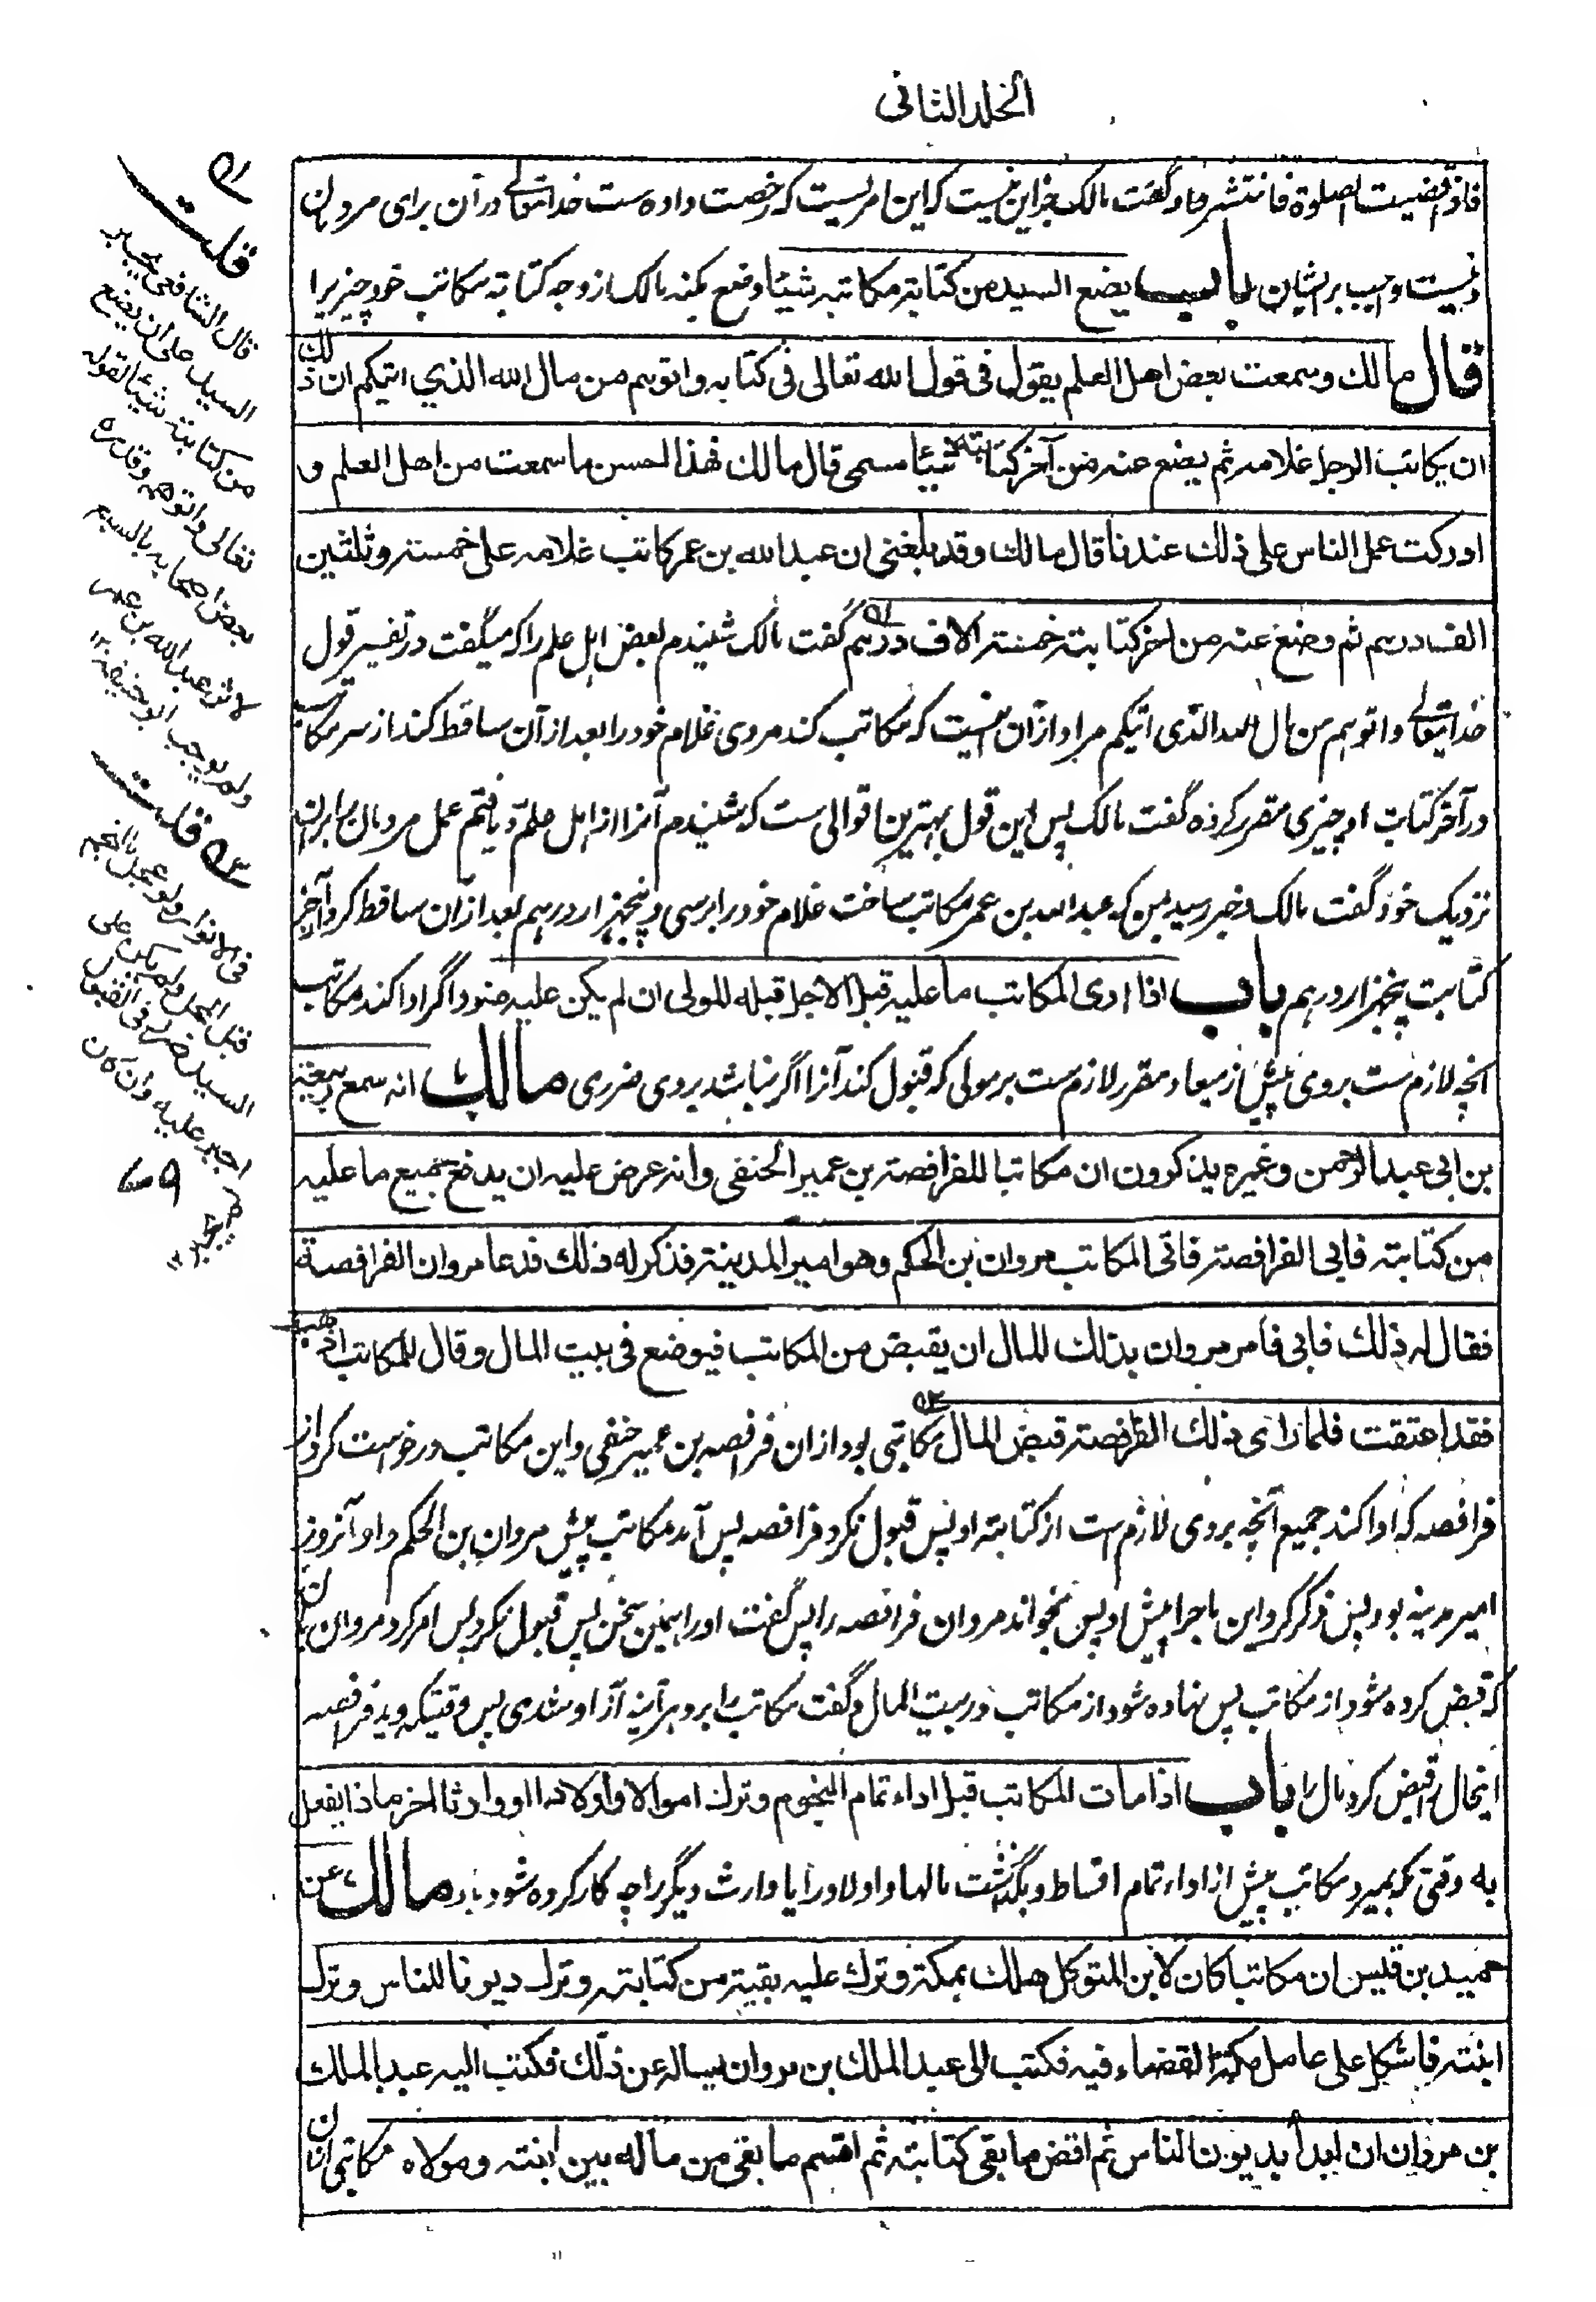 الجلد الثانی
فاذا قضیت الصلوة فانتشروا و گفت مالک جز این نیست که این امریست که رخصت داده ست خدایتعالے در آن برای مردمان
و نیست واجب بر ایشان باب یضع السید من کتابة مکاتبه شیئا وضع بکند مالک از وجه کتابة مکاتب خود چیزیرا
قال مالك وسمعت بعض اهل العلم يقول فى قول الله تعالى فى كتابه واتوهم من مال الله الذي اتيكم ان ذلك
ان يكاتب الرجل غلامه ثم يضع عنه من آخر كتابته شيئا مسمى قال مالك فهذا احسن ما سمعت من اهل العلم و
ادركت عمل الناس على ذلك عندنا قال مالك وقد بلغنى ان عبد الله بن عمر كاتب غلامه على خمسة وثلثين
الف درهم ثم وضع عنه من اخر كتابته خمسة الاف درهم گفت مالک شنیدم بعض اہل علم را که میگفت در تفسیر قول
خدایتعالے واتوہم من مال اللہ الذی اتیکم مراد از آن اینست که مکاتب کند مردی غلام خود را بعد از آن ساقط کند از سر مکاتب
در آخر کتابت او چیزی مقرر کرده گفت مالک پس این قول بہترین اقوالی ست که شنیدم آنرا از اہل علم و یافتم عمل مردمان برابران
نزدیک خود گفت مالک و خبر رسید بمن که عبد اللہ بن عمر مکاتب ساخت غلام خود را بر سی و پنجہزار درہم بعد از آن ساقط کرد از آخر
کتابت پنجہزار درہم باب اذا ادى المكاتب ما عليه قبل الاجل قبله للمولى ان لم يكن عليه ضرر اگر ادا کند مکاتب
انچه لازم ست بر وی پیش از میعاد مقرر لازم ست بر مولی که قبول کند آنرا اگر نباشد بر وی ضرری مالك انه سمع ربيعة
بن ابى عبد الرحمن وغيره يذكرون ان مكاتبا للفرافصة بن عمير الحنفى وانه عرض عليه ان يدفع جميع ما عليه
من كتابته فابى الفرافصة فاتى المكاتب مروان بن الحكم وهو امير المدينة فذكر له ذلك فدعا مروان الفرافصة
فقال له ذلك فابى فامر مروان بذلك المال ان يقبض من المكاتب فيوضع فى بيت المال وقال للمكاتب اذهب
فقد اعتقت فلما رأى ذلك الفرافصة قبض المال مکاتبی بود از ان فرافصه بن عمیر حنفی و این مکاتب درخواست کرد از
فرافصه که ادا کند جمیع آنچه بر وی لازم ست از کتابته او پس قبول نکرد فرافصه پس آمد مکاتب پیش مروان بن الحکم و او آنروز
امیر مدینه بود پس ذکر کرد این ماجرا پیش او پس بخواند مروان فرافصه را پس گفت او را ہمین سخن پس قبول نکرد پس امر کرد مروان بآن
که قبض کرده شود از مکاتب پس نہاده شود از مکاتب در بیت المال و گفت مکاتب را برو ہر آینه آزاد شدی پس وقتیکه دید فرافصه
اینحال قبض کرد مال را باب اذا مات المكاتب قبل اداء تمام النجوم وترك اموالا واولادا او وارثا اخر ماذا يفعل
به وقتی که بمیرد مکاتب پیش از اداء تمام اقساط و بگذشت مالہا و اولاد را یا وارث دیگر را چه کار کرده شود باو مالك عن
حميد بن قيس ان مكاتبا كان لابن المتوكل هلك بمكة وترك عليه بقية من كتابته وترك ديونا للناس وترك
ابنته فاشكل على عامل مكة القضاء فيه فكتب الى عبد الملك بن مروان يساله عن ذلك فكتب اليه عبد الملك
بن مروان ان ابدأ بديون الناس ثم اقض ما بقى كتابته ثم اقسم ما بقى من ماله بين ابنته ومولاه مکاتبی از ان
قلت
قال الشافعى يجبر
السيد على ان يضع
من كتابته شيئا لقوله
تعالى واتوهم وقدره
بعض اصحابه بالسبع
لاثر عبد الله بن عمر
ولم يوجب ابو حنيفة ١٢
قلت
فى الانوار ولو عجل النجم
قبل المحل ولم يكن على
السيد ضرر فى القبول
اجبر عليه وان كان
لم يجبر ١٢